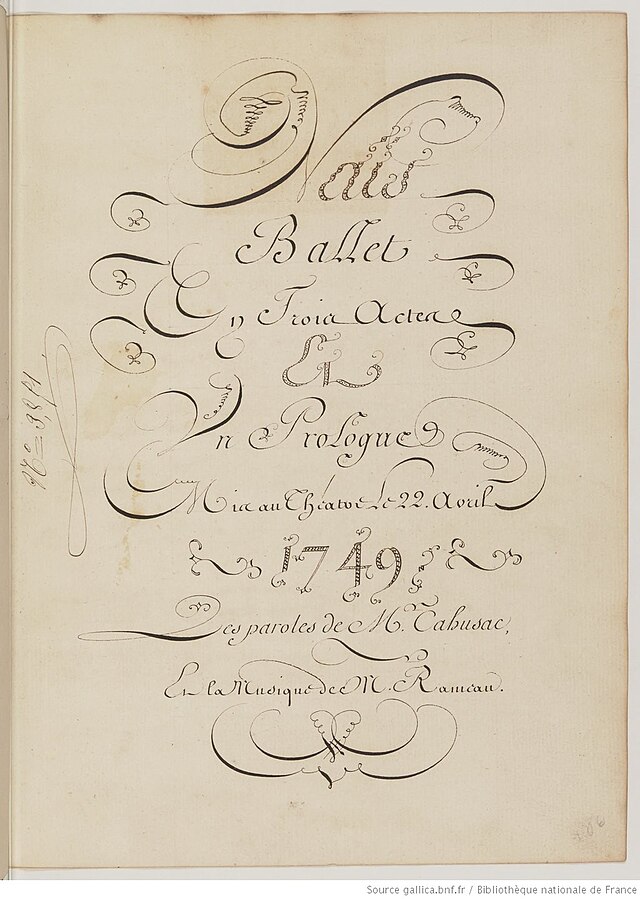 Nais
Ballet
En Trois Actes
Et
Un Prologue
Mis au Théatre le 22. Avril
1749
Les paroles de M. Cahusac,
Et la Musique de M. Rameau.
Source gallica.bnf.fr / Bibliothèque nationale de France